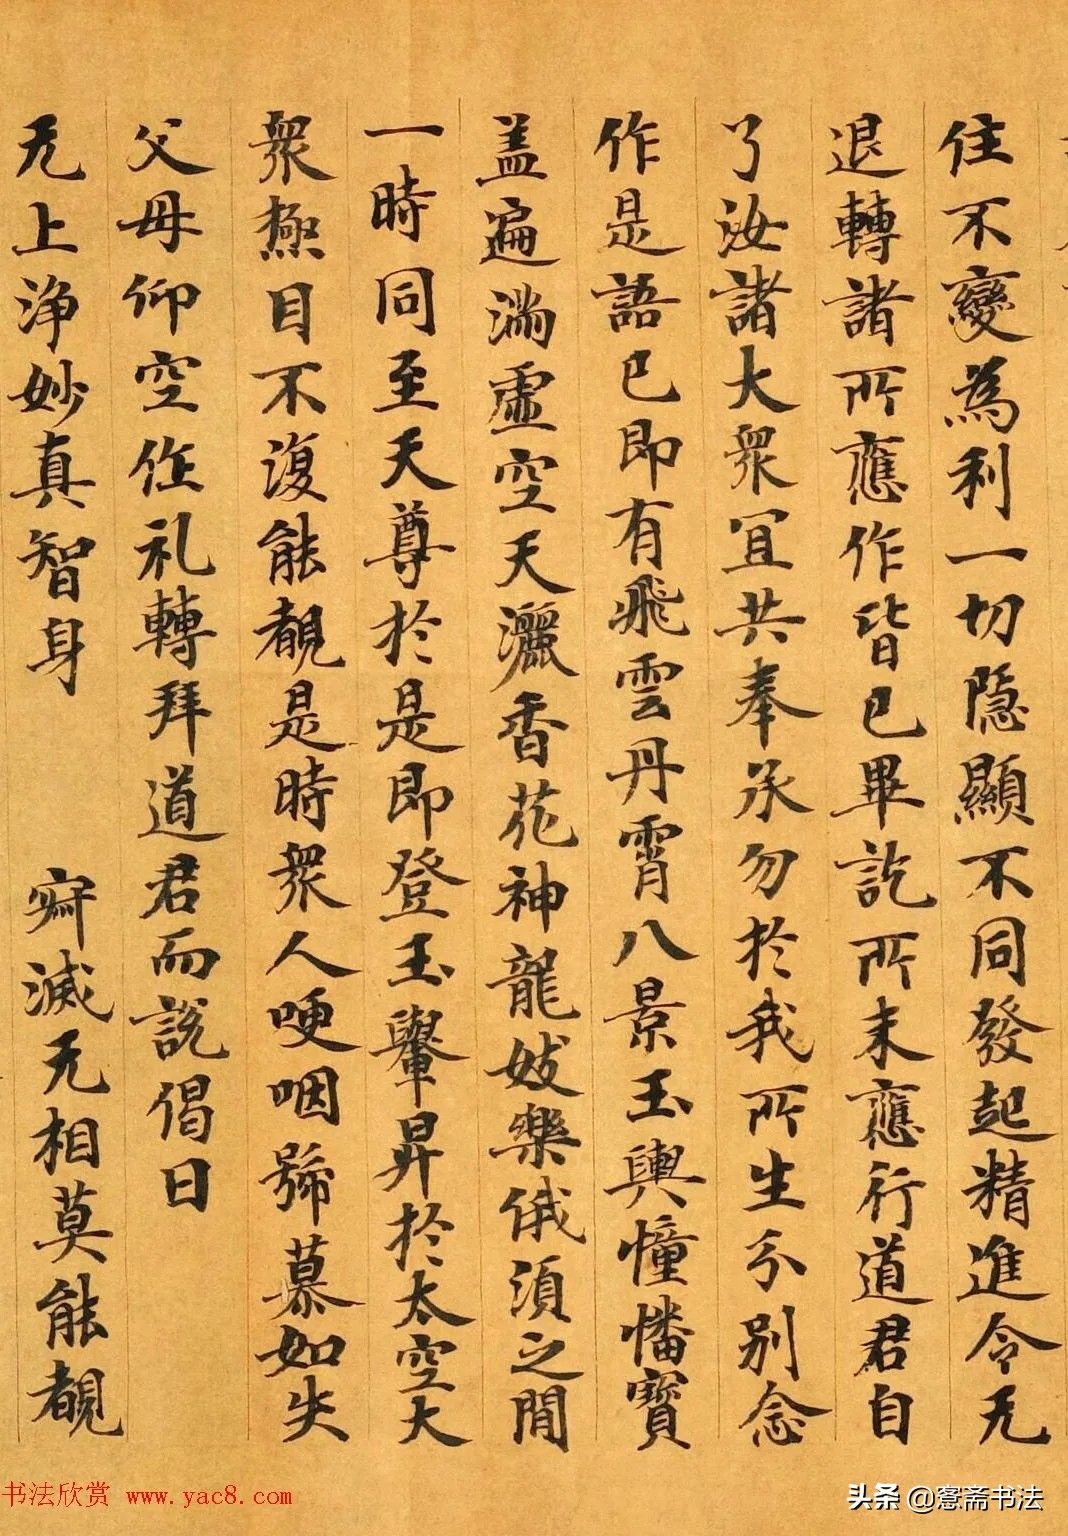 住不變為利一切隐顯不同發起精進令无
退轉諸所應作皆已畢訖所未應行道君自
了汝諸大衆宜共奉承勿於我所生分别念
作是語已即有飛雲丹霄八景玉輿幢幡寶
盖遍满虚空天灑香花神龍妓樂俄須之間
一時同至天尊於是即登玉轝昇於太空大
衆極目不復能覩是時衆人哽咽號慕如失
父母仰空作礼轉拜道君而說偈曰
无上淨妙真智身 寂滅无相莫能覩
书法欣赏 www.yac8.com
头条 @窓斋书法